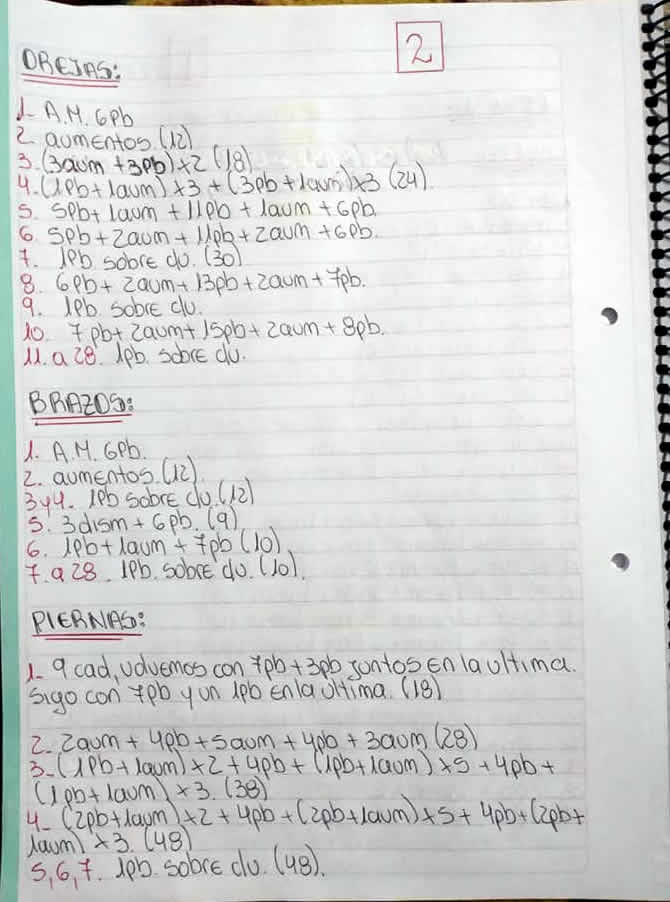 2
OREJAS:
1- A.M. 6pb
2. aumentos. (12)
3. (3aum + 3pb) x2 (18)
4. (1pb + 1aum) x3 + (3pb + 1aum) x3 (24).
5. 5pb + 1aum + 11pb + 1aum + 6pb.
6. 5pb + 2aum + 11pb + 2aum + 6pb.
7. 1pb sobre c/u. (30)
8. 6pb + 2aum + 13pb + 2aum + 7pb.
9. 1pb. sobre c/u.
10. 7pb + 2aum + 15pb + 2aum + 8pb.
11. a 28. 1pb. sobre c/u.
BRAZOS:
1. A.M. 6pb.
2. aumentos. (12)
3 y 4. 1pb sobre c/u. (12)
5. 3dism + 6pb. (9)
6. 1pb + 1aum + 7pb (10)
7. a 28. 1pb. sobre c/u. (10).
PIERNAS:
1- 9 cad, volvemos con 7pb + 3pb juntos en la ultima.
Sigo con 7pb y un 1pb en la ultima. (18)
2- 2aum + 4pb + 5aum + 4pb + 3aum (28)
3- (1pb + 1aum) x2 + 4pb + (1pb + 1aum) x5 + 4pb +
(1pb + 1aum) x3. (38)
4- (2pb + 1aum) x2 + 4pb + (2pb + 1aum) x5 + 4pb + (2pb +
1aum) x3. (48)
5, 6, 7. 1pb. sobre c/u. (48).